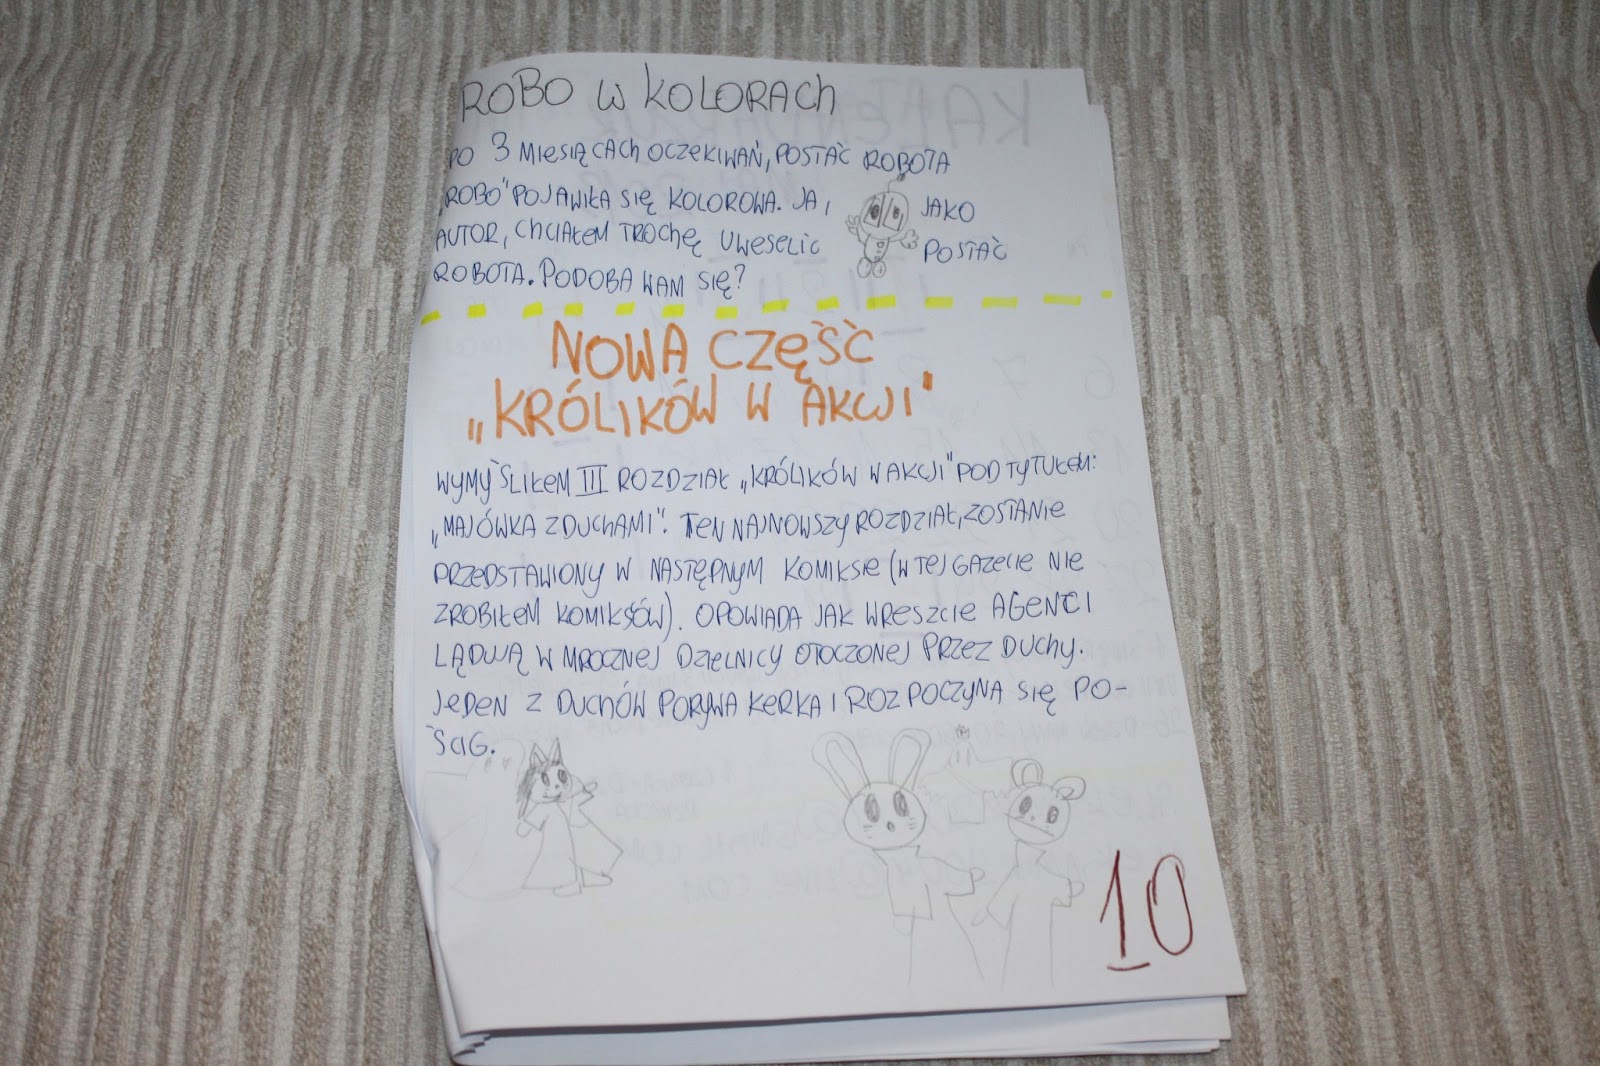 ROBO W KOLORACH
PO 3 MIESIĄCACH OCZEKIWAŃ, POSTAĆ ROBOTA
„ROBO" POJAWIŁA SIĘ KOLOROWA. JA, JAKO
AUTOR, CHCIAŁEM TROCHĘ UWESELIĆ POSTAĆ
ROBOTA. PODOBA WAM SIĘ?
NOWA CZĘŚĆ
„KRÓLIKÓW W AKCJI"
WYMYŚLIŁEM III ROZDZIAŁ „KRÓLIKÓW W AKCJI" POD TYTUŁEM:
„MAJÓWKA Z DUCHAMI". TEN NAJNOWSZY ROZDZIAŁ, ZOSTANIE
PRZEDSTAWIONY W NASTĘPNYM KOMIKSIE (W TEJ GAZECIE NIE
ZROBIŁEM KOMIKSÓW). OPOWIADA JAK WRESZCIE AGENCI
LĄDUJĄ W MROCZNEJ DZIELNICY OTOCZONEJ PRZEZ DUCHY.
JEDEN Z DUCHÓW PORYWA KERKA I ROZPOCZYNA SIĘ PO-
ŚCIG.
10